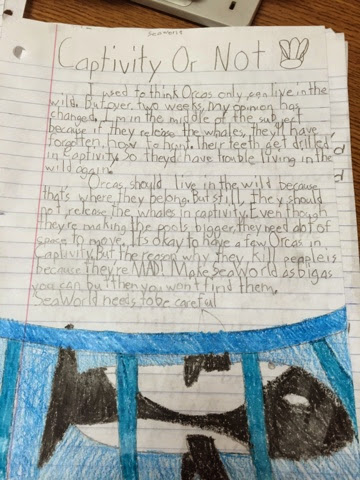 Seaworld
Captivity Or Not
I used to think Orcas only can live in the
wild. But over two weeks, my opinion has
changed. I'm in the middle of the subject
because if they release the whales, they'll have
forgotten how to hunt. Their teeth get drilled
in captivity. So they'd have trouble living in the
wild again.
Orcas should live in the wild because
that's where they belong. But still, they should
not release the whales in captivity. Even though
they're making the pools bigger, they need alot of
space to move. It's okay to have a few Orcas in
Captivity, but the reason why they kill people is
because they're MAD! Make SeaWorld as big as
you can but then you won't find them.
SeaWorld needs to be careful